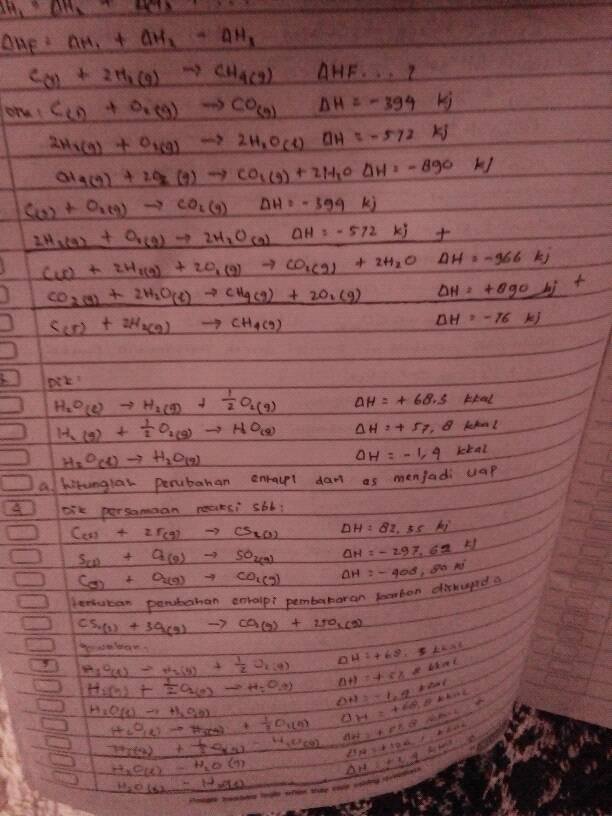 ΔH₁ = ΔH₂ + ΔH₃
ΔHF = ΔH₁ + ΔH₂ - ΔH₃
C(s) + 2H₂(g) → CH₄(g) ΔHF...?
C(s) + O₂(g) → CO(g) ΔH = -394 kj
2H₂(g) + O₂(g) → 2H₂O(l) ΔH = -572 kj
CH₄(g) + 2O₂(g) → CO₂(g) + 2H₂O ΔH = -890 kj
C(s) + O₂(g) → CO₂(g) ΔH = -394 kj
2H₂(g) + O₂(g) → 2H₂O(g) ΔH = -572 kj +
C(s) + 2H₂(g) + 2O₂(g) → CO₂(g) + 2H₂O ΔH = -966 kj
CO₂(g) + 2H₂O(l) → CH₄(g) + 2O₂(g) ΔH = +890 kj +
C(s) + 2H₂(g) → CH₄(g) ΔH = -76 kj
3 Dik:
H₂O(l) → H₂(g) + 1/2 O₂(g) ΔH = +68.3 kkal
H₂(g) + 1/2 O₂(g) → H₂O(g) ΔH = +57,8 kkal
H₂O(l) → H₂O(g) ΔH = -1,9 kkal
a. hitunglah perubahan entalpi dari es menjadi uap
4 Dik persamaan reaksi sbb:
C(s) + 2S(g) → CS₂(l) ΔH: 82,35 kj
S(s) + O₂(g) → SO₂(g) ΔH = -297,62 kj
C(s) + O₂(g) → CO₂(g) ΔH = -408,80 kj
tentukan perubahan entalpi pembakaran karbon disulpida
CS₂(l) + 3O₂(g) → CO₂(g) + 2SO₂(g)
Jawaban:
3 H₂O(l) → H₂(g) + 1/2 O₂(g) ΔH = +68,3 kkal
H₂(g) + 1/2 O₂(g) → H₂O(g) ΔH = +57,8 kkal
H₂O(l) → H₂O(g) ΔH = -1,9 kkal
H₂O(l) → H₂(g) + 1/2 O₂(g) ΔH = +68,3 kkal
H₂(g) + 1/2 O₂(g) → H₂O(g) ΔH = +
H₂O(l) → H₂O(g) ΔH =
H₂O(s) → ΔH =